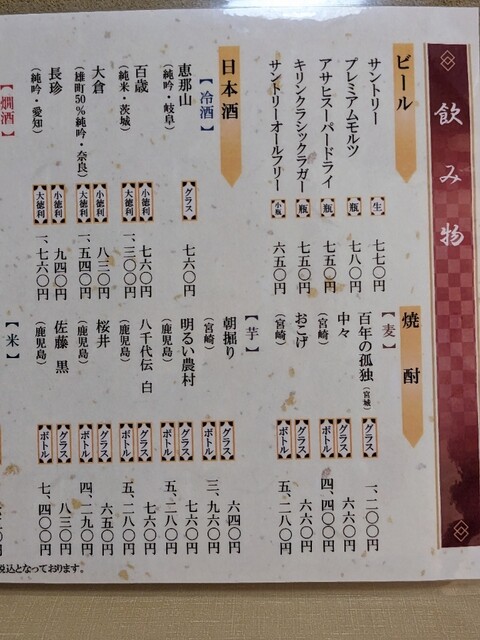 飲み物
ビール
サントリー
プレミアムモルツ 生 七七〇円
瓶 七八〇円
アサヒスーパードライ 瓶 七五〇円
キリンクラシックラガー 瓶 七五〇円
サントリーオールフリー 小瓶 六五〇円
日本酒
【冷酒】
恵那山
(純吟・岐阜) グラス 七六〇円
百歳 小徳利 七六〇円
(純米・茨城) 大徳利 一、三〇〇円
大倉 小徳利 八三〇円
(雄町50%純吟・奈良) 大徳利 一、五四〇円
長珍 小徳利 九四〇円
(純吟・愛知) 大徳利 一、七六〇円
【燗酒】
焼酎
【麦】
百年の孤独(宮城) グラス 一、二〇〇円
中々 グラス 六六〇円
(宮崎) ボトル 四、四〇〇円
おこげ グラス 六六〇円
(宮崎) ボトル 五、二八〇円
【芋】
朝掘り グラス 六四〇円
(宮崎) ボトル 三、九六〇円
明るい農村 グラス 七六〇円
(鹿児島) ボトル 五、二八〇円
八千代伝 白 グラス 七六〇円
(鹿児島) ボトル 五、二八〇円
桜井 グラス 六五〇円
(鹿児島) ボトル 四、二九〇円
佐藤 黒 グラス 八三〇円
(鹿児島) ボトル 七、四〇〇円
【米】
税込となっております。